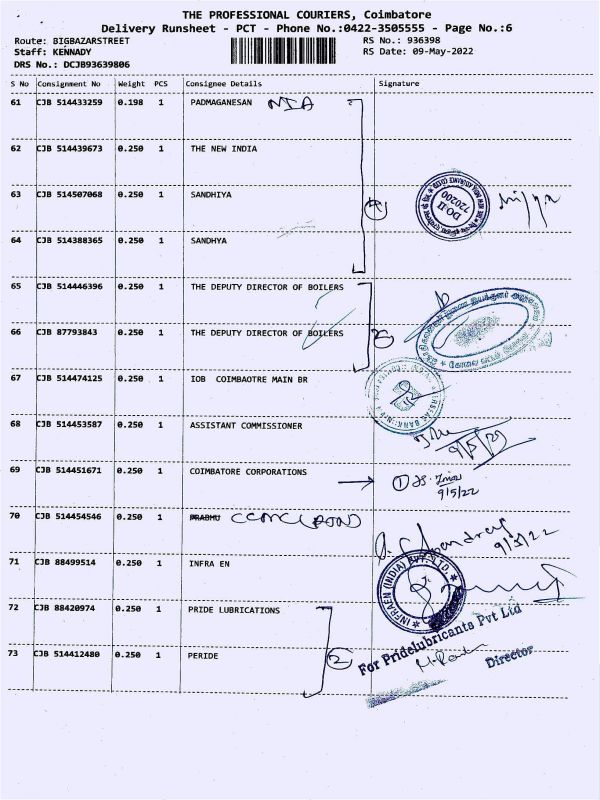 THE PROFESSIONAL COURIERS, Coimbatore
Delivery Runsheet - PCT - Phone No.:0422-3505555 - Page No.:6
Route: BIGBAZARSTREET RS No.: 936398
Staff: KENNADY RS Date: 09-May-2022
DRS No.: DCJB93639806
S No Consignment No Weight PCS Consignee Details Signature
61 CJB 514433259 0.198 1 PADMAGANESAN NIA
62 CJB 514439673 0.250 1 THE NEW INDIA
63 CJB 514507068 0.250 1 SANDHIYA
DO-II
720200
4
64 CJB 514388365 0.250 1 SANDHYA
65 CJB 514446396 0.250 1 THE DEPUTY DIRECTOR OF BOILERS
66 CJB 87793843 0.250 1 THE DEPUTY DIRECTOR OF BOILERS 2
67 CJB 514474125 0.250 1 IOB COIMBAOTRE MAIN BR
68 CJB 514453587 0.250 1 ASSISTANT COMMISSIONER
9/5/22
69 CJB 514451671 0.250 1 COIMBATORE CORPORATIONS 1
9/5/22
70 CJB 514454546 0.250 1 PRABHU CCMC
9/5/22
71 CJB 88499514 0.250 1 INFRA EN
INFRAEN (INDIA) PVT. LTD.
72 CJB 88420974 0.250 1 PRIDE LUBRICATIONS
For Pridelubricants Pvt Ltd
73 CJB 514412480 0.250 1 PERIDE 2
Director